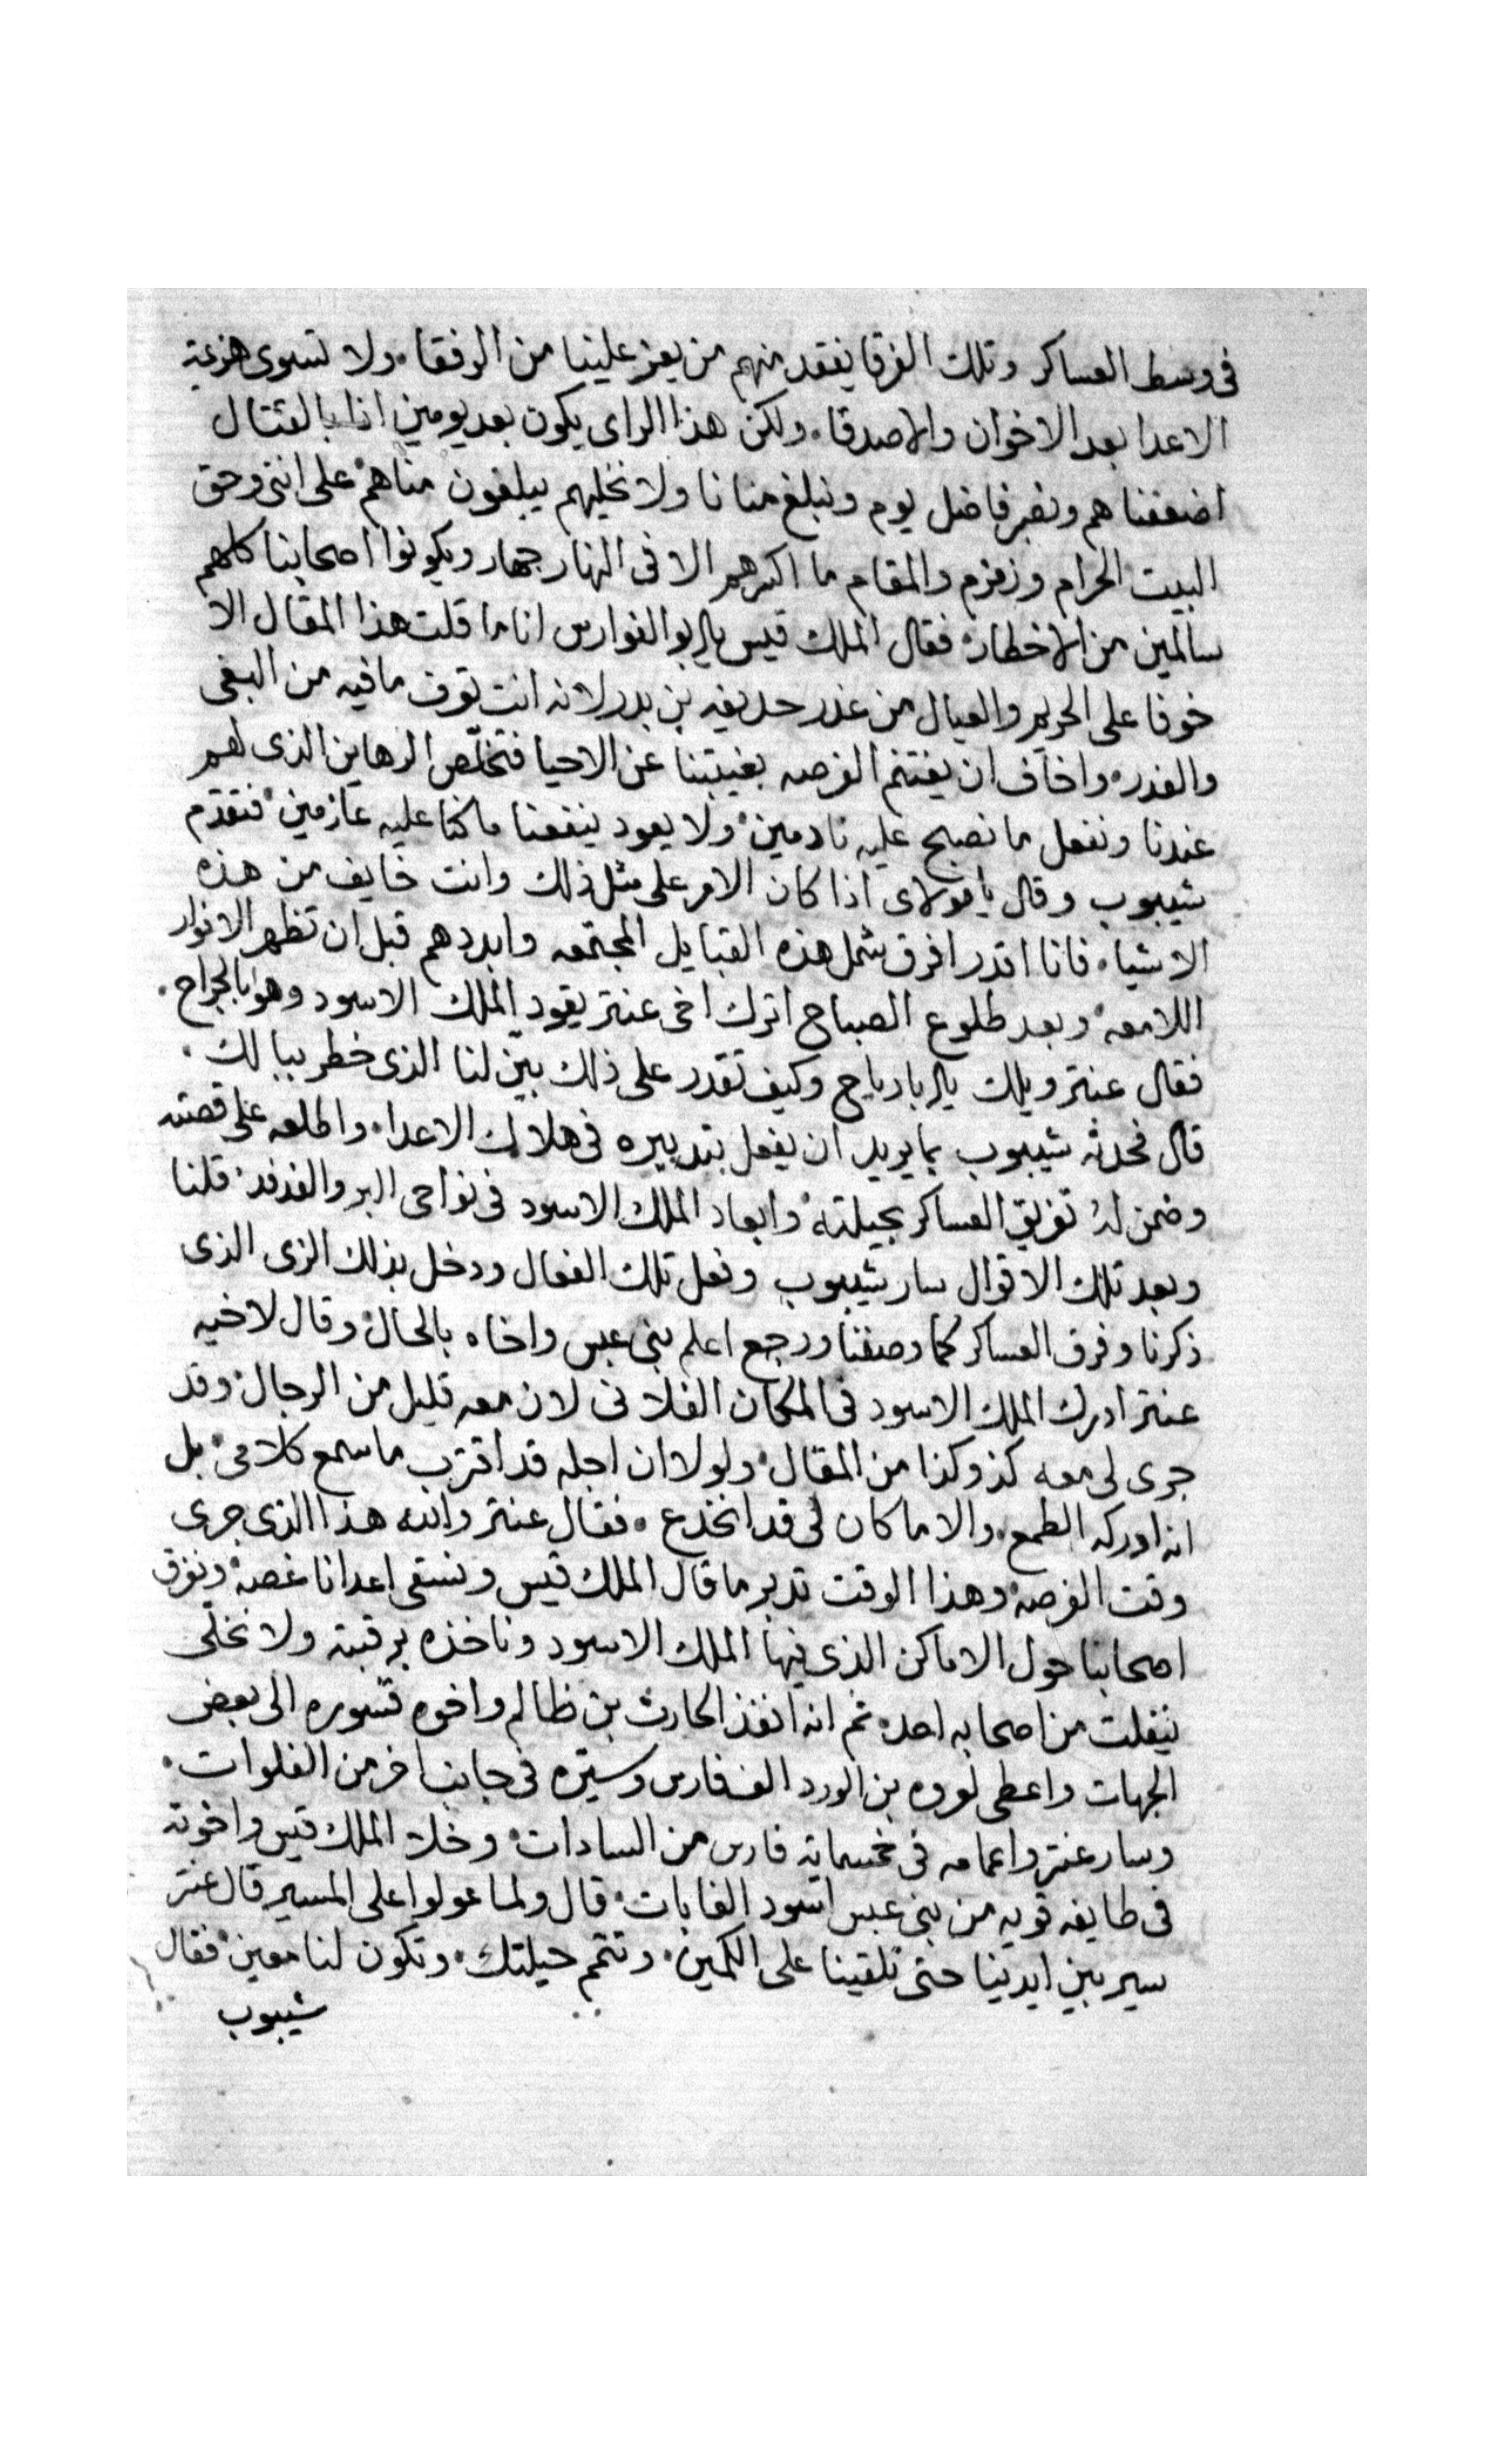 فى وسط العساكر وتلك الفرقا يفقد منهم من يعز علينا من الرفقا ولا تسوى هزيمة
الاعدا بعد الاخوان والاصدقا ولكن هذا الراى يكون بعد يومين اذا بالقتال
اضعفناهم ونصبر فاضل يوم ونبلغ منانا ولا نخليهم يبلغون مناهم على اننى وحق
البيت الحرام وزمزم والمقام ما اكسرهم الا فى النهار جهار ويكونوا اصحابنا كلهم
سالمين من الاخطار فقال الملك قيس يا ابو الفوارس انا ما قلت هذا المقال الا
خوفا على الحريم والعيال من غدر حديفه بن بدر لانه انت تعرف ما فيه من البغى
والغدر واخاف ان يغتنم الفرصه بغيبتنا عن الاحيا فتخلّص الرهاين الذى لهم
عندنا ونفعل ما نصبح عليه نادمين ولا يعود ينفعنا ما كنا عليه عازمين فتقدّم
شيبوب وقال يا مولاى اذا كان الامر على مثل ذلك وانت خايف من هذه
الاشيا فانا اقدر افرق شمل هذه القبايل المجتمعه وابددهم قبل ان تظهر الانوار
اللامعه وبعد طلوع الصباح اترك اخى عنتر يقود الملك الاسود وهو بالجراح
فقال عنتر ويلك يا ابا رياح وكيف تقدر على ذلك بيّن لنا الذى خطر ببالك
قال فحدثه شيبوب بما يريد ان يفعل بتدبيره فى هلاك الاعدا واطلعه على قصته
وضمن له تفريق العساكر بحيلته وابعاد الملك الاسود فى نواحى البر والفدفد قلنا
وبعد تلك الاقوال سار شيبوب وفعل تلك الفعال ودخل بذلك الزى الذى
ذكرنا وفرق العساكر كما وصفنا ورجع اعلم بنى عبس واخاه بالحال وقال لاخيه
عنتر ادرك الملك الاسود فى المكان الفلانى لان معه قليل من الرجال وقد
جرى لى معه كذ وكذا من المقال ولولا ان اجله قد اقترب ما سمع كلامى بل
انه ادركه الطمع والا ما كان لى قد انخدع فقال عنتر والله هذا الذى جرى
وقت الفرصه وهذا الوقت تدبر ما قال الملك قيس ونسقى اعدانا غصه ونفرق
اصحابنا حول الاماكن الذى فيها الملك الاسود وناخذه برقبته ولا نخلّى
ينفلت من اصحابه احد ثم انه انفذ الحارث بن ظالم واخوه قسوره الى بعض
الجهات واعطى لعروه بن الورد الف فارس وسيّره فى جانب اخر من الفلوات
وسار عنتر واعمامه فى خمسماية فارس من السادات وخلا الملك قيس واخوته
فى طايفه قويه من بنى عبس اسود الغابات قال ولما عولوا على المسير قال عنتر
سير بين ايدينا حتى تلقينا على الكمين وتتم حيلتك وتكون لنا معين فقال
شيبوب